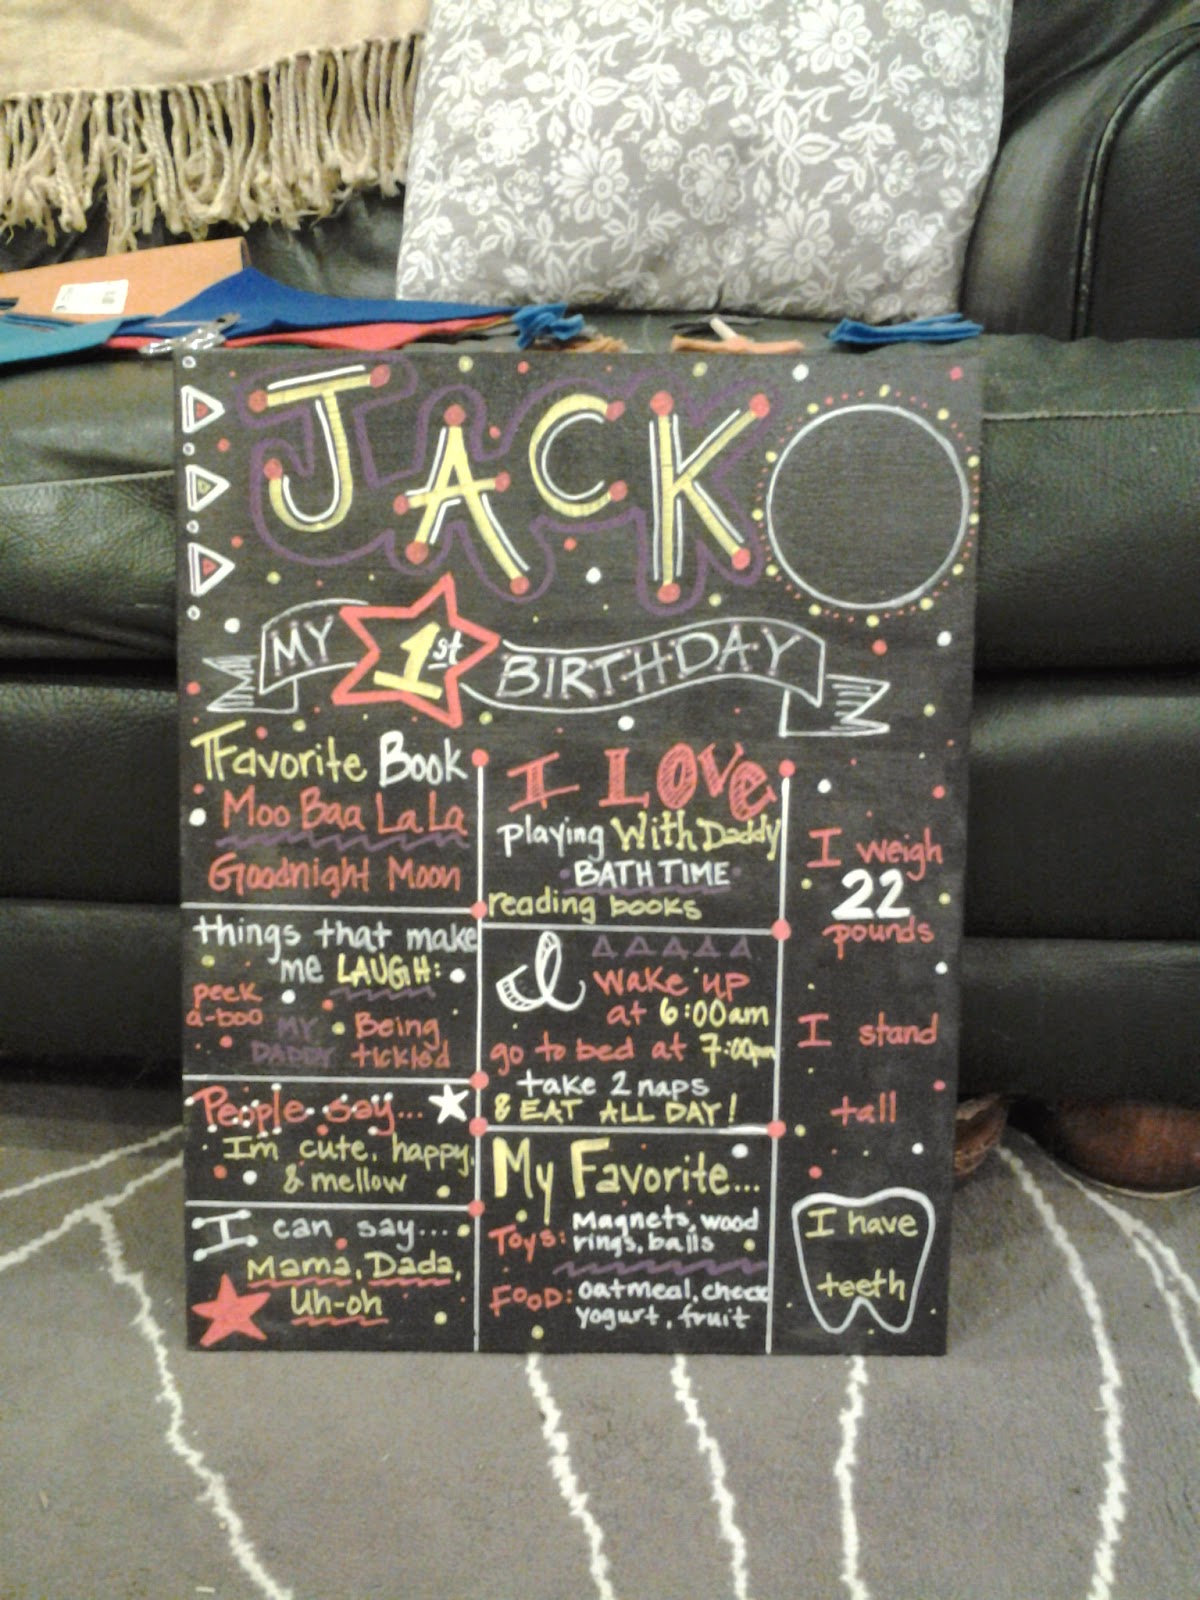 JACK
MY 1st BIRTHDAY
Favorite Book
Moo Baa La La
Goodnight Moon
things that make
me LAUGH:
peek
a-boo
MY
DADDY
Being
tickled
People say...
Im cute, happy,
& mellow
I can say...
Mama, Dada,
Uh-oh
I LOVE
playing With Daddy
BATH TIME
reading books
I wake up
at 6:00am
go to bed at 7:00pm
take 2 naps
& EAT ALL DAY!
My Favorite...
Toys: Magnets, wood
rings, balls
FOOD: oatmeal,
yogurt, fruit
I weigh
22
pounds
I stand
tall
I have
teeth